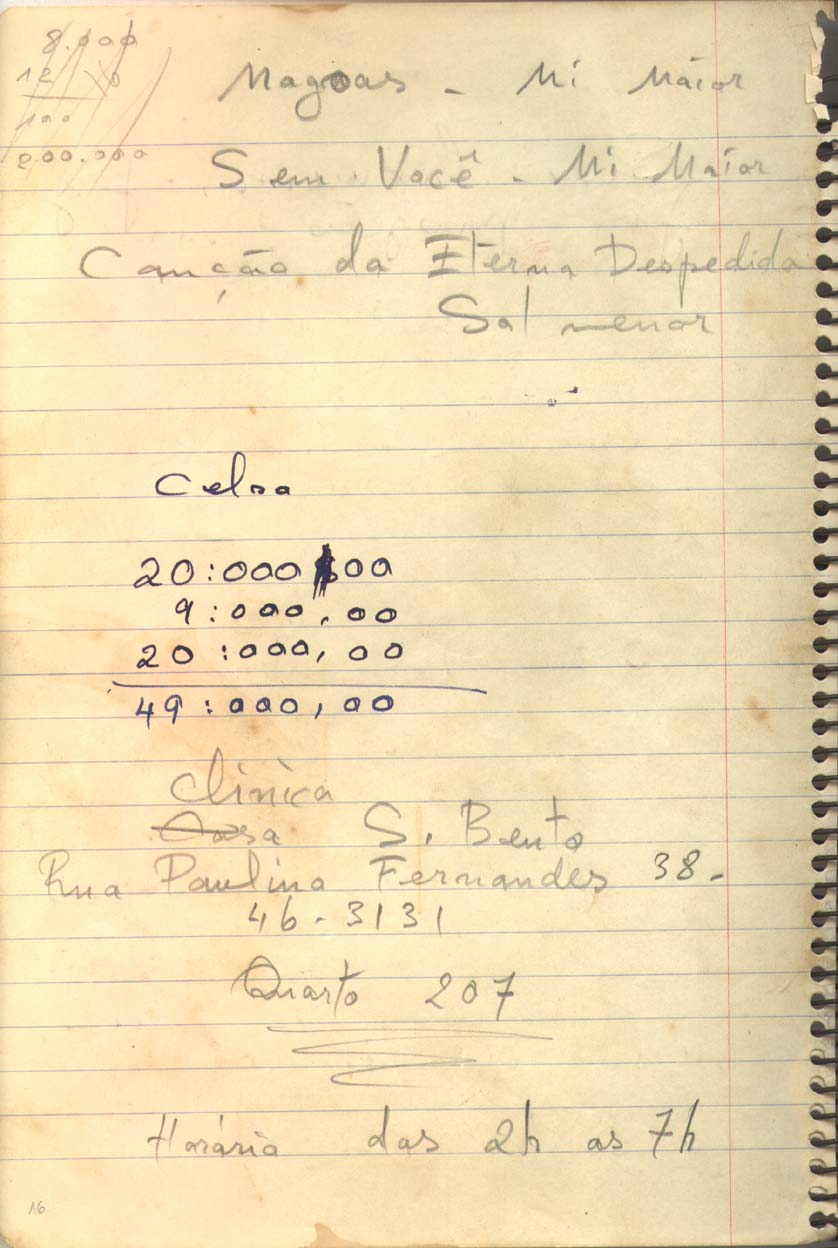 8.000
12
100
200.000
Magoas - Mi Maior
Sem Você - Mi Maior
Canção da Eterna Despedida
Sol menor
Celso
20:000,00
9:000,00
20:000,00
49:000,00
Clinica
Casa S. Bento
Rua Paulino Fernandes 38-
46-3131
Quarto 207
Horário das 2h as 7h
16